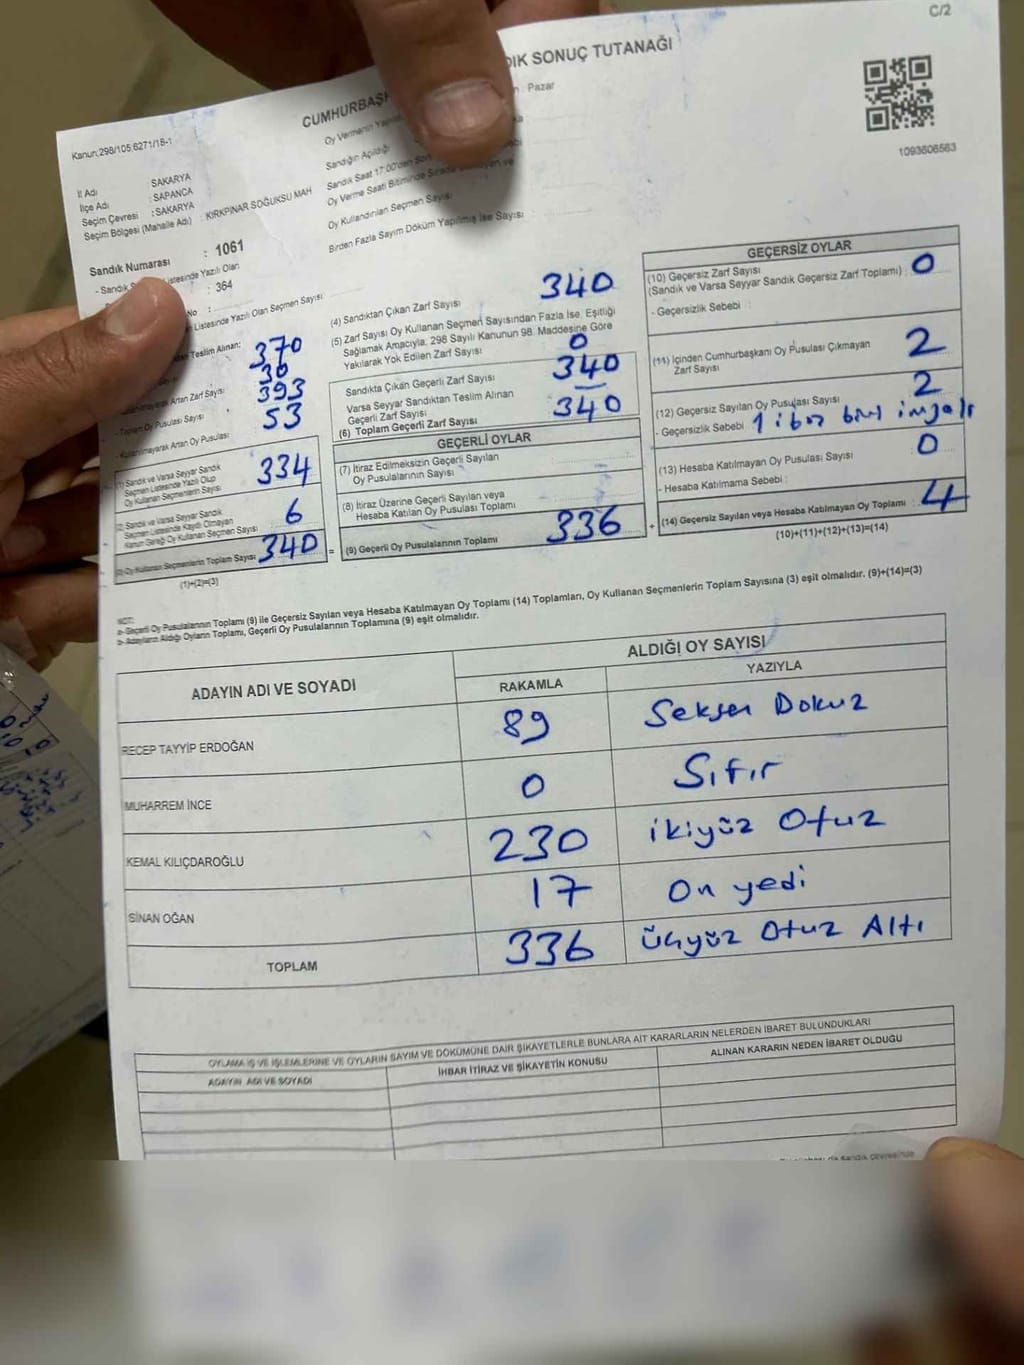 C/2
CUMHURBAŞ
DIK SONUÇ TUTANAĞI
Pazar
Kanun:298/105,6271/18-1
1093606563
İl Adı : SAKARYA
İlçe Adı : SAPANCA
Seçim Çevresi : SAKARYA
Seçim Bölgesi (Mahalle Adı) : KIRKPINAR SOĞUKSU MAH
Sandık Numarası : 1061
Listesinde Yazılı Olan
: 364
Listesinde Yazılı Olan Seçmen Sayısı
Oy Vermenin
Sandığın Açıldığı
Sandık Saat 17:00'den
Oy Verme Saati Bitiminde
Oy Kullandırılan Seçmen Sayısı
Birden Fazla Sayım Döküm Yapılmış İse Sayısı :
Teslim Alınan: 370
Kullanılmayarak Artan Zarf Sayısı 30
- Toplam Oy Pusulası Sayısı 393
- Kullanılmayarak Artan Oy Pusulası 53
(1) Sandık ve Varsa Seyyar Sandık
Seçmen Listesinde Yazılı Olup
Oy Kullanan Seçmenlerin Sayısı 334
(2) Sandık ve Varsa Seyyar Sandık
Seçmen Listesinde Kaydı Olmayan
Kanun Gereği Oy Kullanan Seçmen Sayısı 6
(3) Oy Kullanan Seçmenlerin Toplam Sayısı 340 =
(1)+(2)=(3)
(4) Sandıktan Çıkan Zarf Sayısı 340
(5) Zarf Sayısı Oy Kullanan Seçmen Sayısından Fazla İse, Eşitliği
Sağlamak Amacıyla, 298 Sayılı Kanunun 98. Maddesine Göre
Yakılarak Yok Edilen Zarf Sayısı 0
Sandıkta Çıkan Geçerli Zarf Sayısı 340
Varsa Seyyar Sandıktan Teslim Alınan
Geçerli Zarf Sayısı
(6) Toplam Geçerli Zarf Sayısı : 340
GEÇERLİ OYLAR
(7) İtiraz Edilmeksizin Geçerli Sayılan
Oy Pusulalarının Sayısı
(8) İtiraz Üzerine Geçerli Sayılan veya
Hesaba Katılan Oy Pusulası Toplamı
(9) Geçerli Oy Pusulalarının Toplamı 336 +
GEÇERSİZ OYLAR
(10) Geçersiz Zarf Sayısı
(Sandık ve Varsa Seyyar Sandık Geçersiz Zarf Toplamı) : 0
- Geçersizlik Sebebi :
(11) İçinden Cumhurbaşkanı Oy Pusulası Çıkmayan
Zarf Sayısı 2
(12) Geçersiz Sayılan Oy Pusulası Sayısı 2
- Geçersizlik Sebebi 1 i boz biri imzalı
(13) Hesaba Katılmayan Oy Pusulası Sayısı 0
- Hesaba Katılmama Sebebi :
(14) Geçersiz Sayılan veya Hesaba Katılmayan Oy Toplamı : 4
(10)+(11)+(12)+(13)=(14)
NOT:
a- Geçerli Oy Pusulalarının Toplamı (9) ile Geçersiz Sayılan veya Hesaba Katılmayan Oy Toplamı (14) Toplamları, Oy Kullanan Seçmenlerin Toplam Sayısına (3) eşit olmalıdır. (9)+(14)=(3)
b- Adayların Aldığı Oyların Toplamı, Geçerli Oy Pusulalarının Toplamına (9) eşit olmalıdır.
ADAYIN ADI VE SOYADI
ALDIĞI OY SAYISI
RAKAMLA YAZIYLA
RECEP TAYYİP ERDOĞAN 89 Seksen Dokuz
MUHARREM İNCE 0 Sıfır
KEMAL KILIÇDAROĞLU 230 ikiyüz Otuz
SİNAN OĞAN 17 On yedi
TOPLAM 336 üçyüz Otuz Altı
OYLAMA İŞ VE İŞLEMLERİNE VE OYLARIN SAYIM VE DÖKÜMÜNE DAİR ŞİKAYETLERLE BUNLARA AİT KARARLARIN NELERDEN İBARET BULUNDUKLARI
ADAYIN ADI VE SOYADI İHBAR İTİRAZ VE ŞİKAYETİN KONUSU ALINAN KARARIN NEDEN İBARET OLDUĞU
da sandık çevresinde